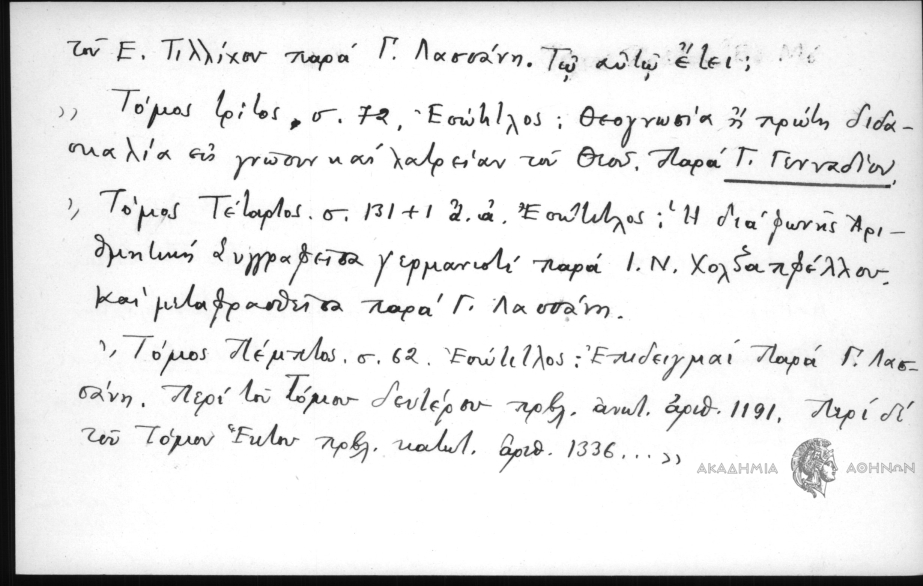 τοῦ Ε. Τιλλίχου παρά Γ. Λασσάνη. Τῷ αὐτῷ ἔτει;
,, Τόμος τρίτος, σ. 72, Ἐσώτιτλος: Θεογνωσία ἤ πρώτη διδα-
σκαλία εἰς γνῶσιν καί λατρείαν τοῦ Θεοῦ. Παρά Γ. Γενναδίου.
,, Τόμος Τέταρτος. σ. 131+1 ἄ. ἀ. Ἐσώτιτλος: Ἡ διά φωνῆς Ἀρι-
θμητική συγγραφεῖσα γερμανιστί παρά Ι. Ν. Χολζαπφέλλου.
καί μεταφρασθεῖσα παρά Γ. Λασσάνη.
,, Τόμος Πέμπτος. σ. 62. Ἐσώτιτλος: Ἐπιδειγμαί Παρά Γ. Λασ-
σάνη. Περί τοῦ Τόμου δευτέρου πρβλ. ἀνωτ. ἀριθ. 1191. Περί δέ
τοῦ Τόμου Ἕκτου πρβλ. κατωτ. ἀριθ. 1336...,,
ΑΚΑΔΗΜΙΑ ΑΘΗΝΩΝ